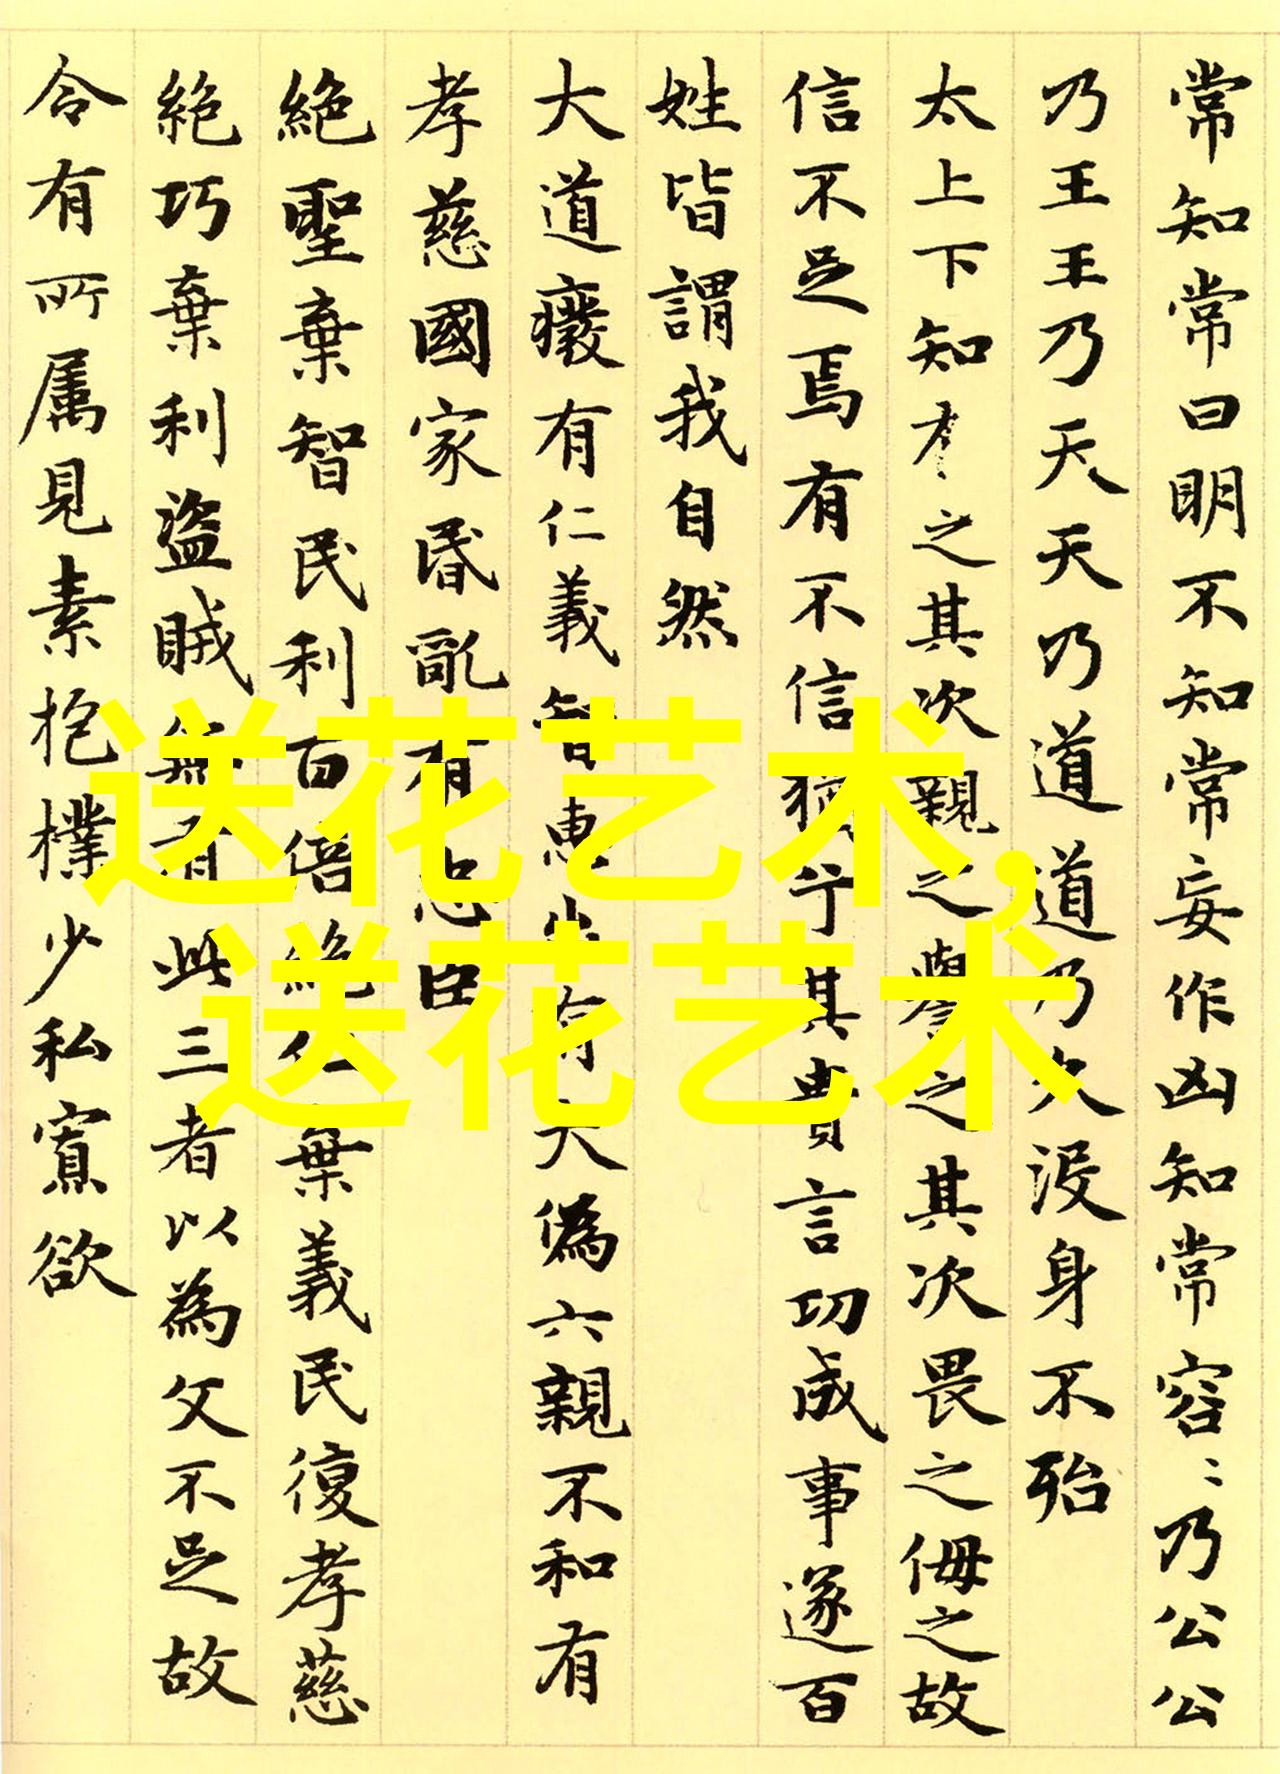 常知常曰明不知知常妄作凶知常容〻乃公公
乃王王乃天天乃道道乃久没身不殆
太上下知有之其次親之譽之其次畏之侮之故
信不足焉有不信猶兮其貴言功成事遂百
姓皆謂我自然
大道廢有仁義智惠出有大偽六親不和有
孝慈國家昏亂有忠臣
絕聖棄智民利百倍絕仁棄義民復孝慈
絕巧棄利盜賊無有此三者以為文不足故
令有所属見素抱樸少私寡欲
送花艺术,
送花艺术